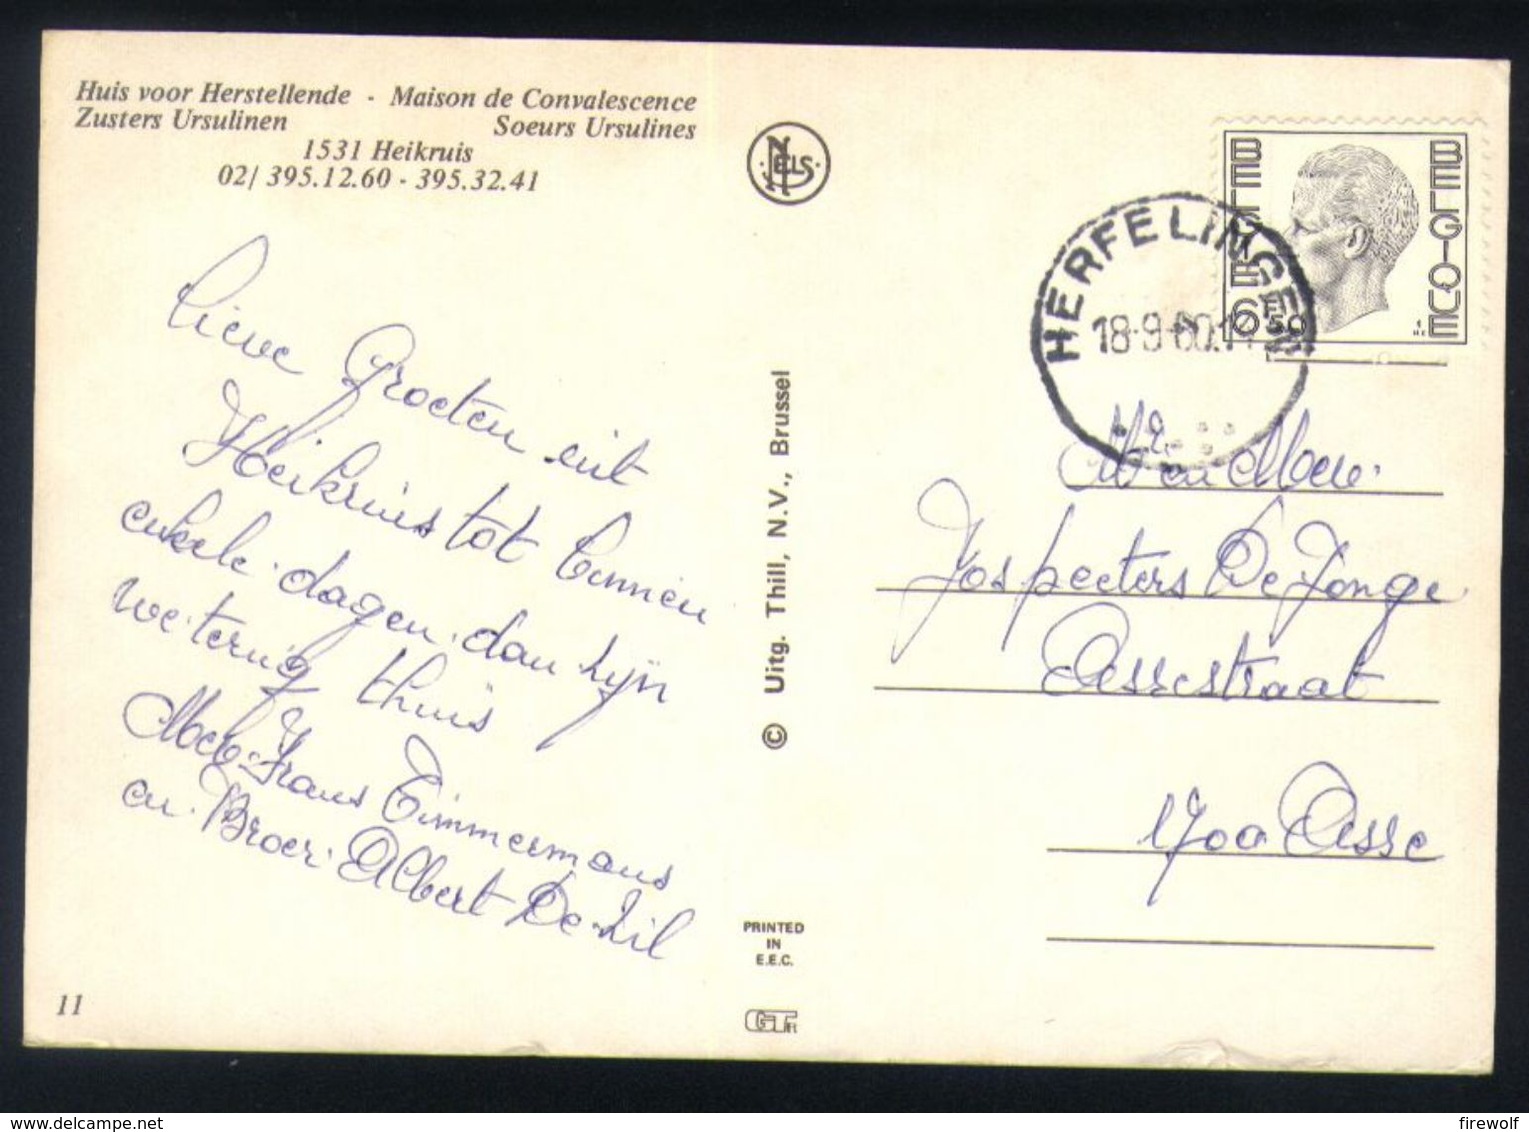 Huis voor Herstellende - Maison de Convalescence
Zusters Ursulinen Soeurs Ursulines
1531 Heikruis
02/ 395.12.60 - 395.32.41
Lieve Groeten uit
Heikruis tot binnen
enkele dagen dan zijn
we terug thuis
Frans Timmermans
en Broer Albert De Zil
11
NELS
© Uitg. Thill, N.V., Brussel
PRINTED
IN
E.E.C.
BELGIE
BELGIQUE
6 50
HERFELINGEN
en Mevr.
Jos peeters De Jonge
Assestraat
1700 Asse
firewolf